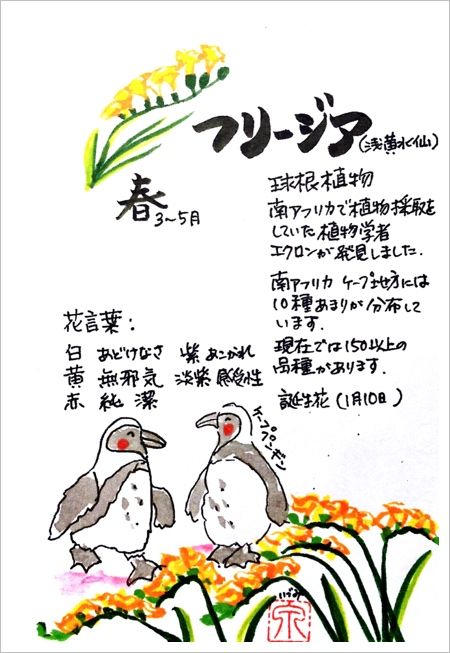 フリージア(浅黄水仙)
春 3〜5月
球根植物
南アフリカで植物採取を
していた植物学者
エクロンが発見しました.
南アフリカ ケープ地方には
10種あまりが分布して
います.
現在では150以上の
品種があります.
誕生花(1月10日)
花言葉:
白 あどけなさ 紫 あこがれ
黄 無邪気 淡紫 感受性
赤 純潔
ケープペンギン
いづみ